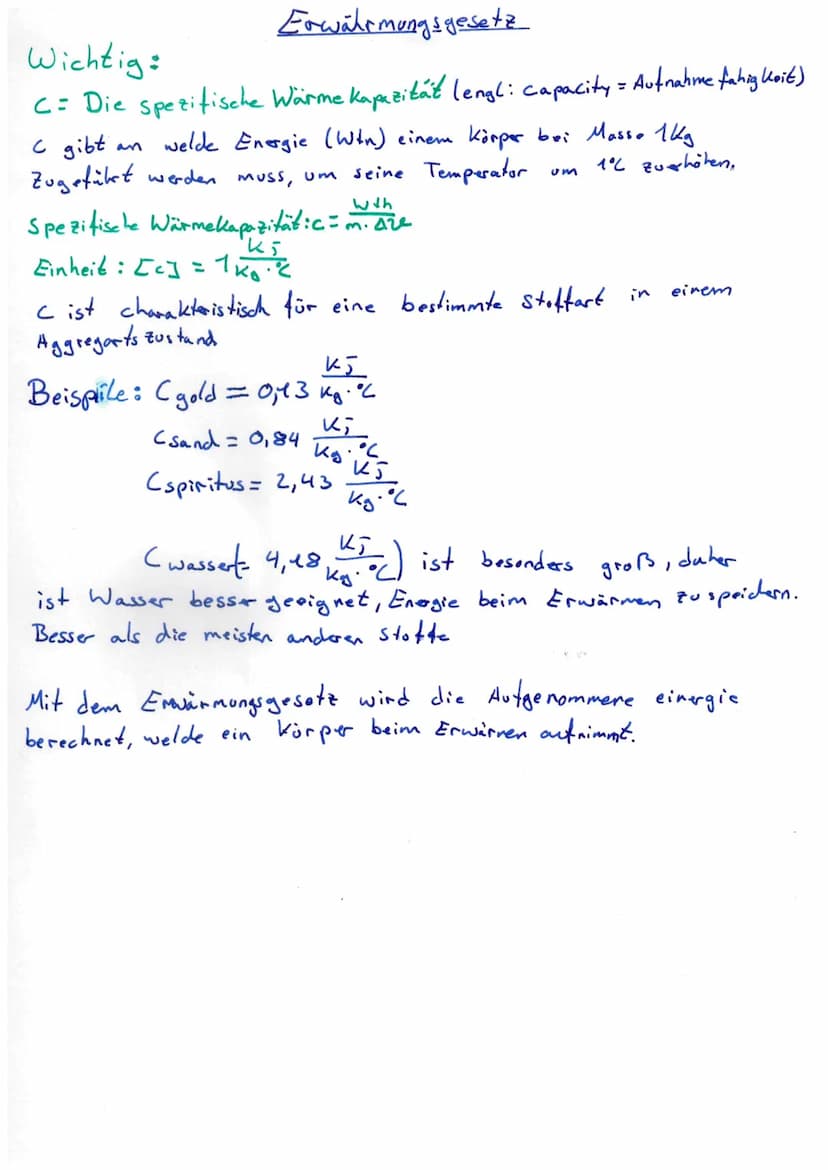 Erwährmungsgesetz
Wichtig:
C = Die spezifische Wärme kapazität (engl: capacity = Aufnahme fähigkeit)
C gibt an welde Energie (Wtn) einem Körper bei Masse 1Kg
Zugeführt werden muss, um seine Temperator um 1°C zuerhöhen,
Spezifische Wärmekapazität: c = Wth / m. Δϑ
Einheit: [c] = 1 KJ / Kg·°C
C ist charakteristisch für eine bestimmte Stoffart in einem
Aggregarts zustand
Beispiile: C gold = 0,13 KJ / Kg·°C
Csand = 0,84 KJ / Kg·°C
Cspiritus = 2,43 KJ / Kg·°C
C wasser(= 4,18 KJ / Kg·°C) ist besonders groß, daher
ist Wasser besser geeignet, Energie beim Erwärmen zu speichern.
Besser als die meisten anderen Stoffe
Mit dem Erwärmungsgesetz wird die Aufgenommene einergie
berechnet, welde ein Körper beim Erwärmen aufnimmt.